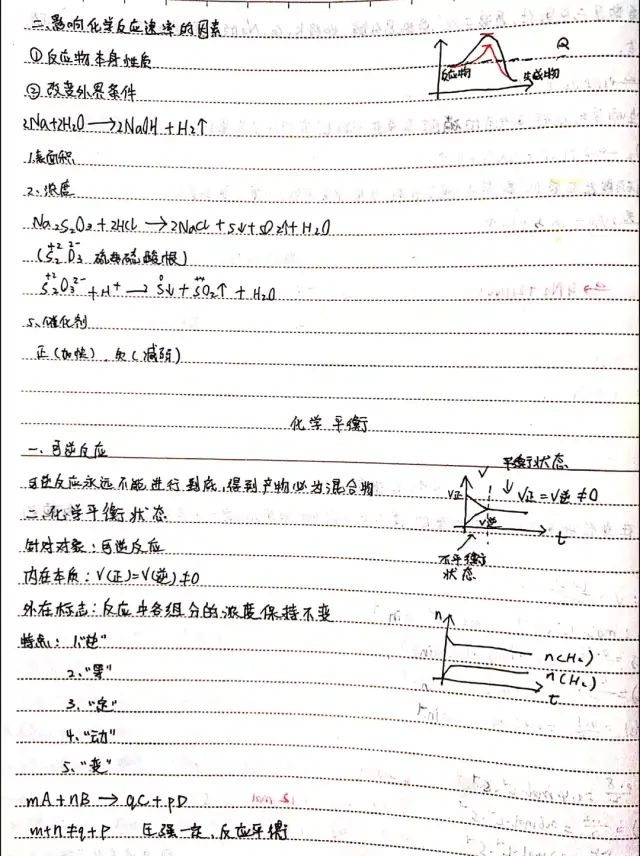 二.影响化学反应速率的因素
①反应物本身性质
Q
反应物
生成物
②改变外界条件
2Na+2H₂O→2NaOH+H₂↑
1.表面积
2、浓度
Na₂S₂O₃+2HCl→2NaCl+S↓+SO₂↑+H₂O
(S₂O₃²⁻ 硫酸根)
+2
S₂O₃²⁻+H⁺→S↓+SO₂↑+H₂O
+2 0 +4
5、催化剂
正(加快)、负(减弱)
化学平衡
一、可逆反应
可逆反应永远不能进行到底,得到产物必为混合物
平衡状态
V正
V正=V逆≠0
V逆
t
不平衡
状态
二.化学平衡状态
针对对象:可逆反应
内在本质:V(正)=V(逆)≠0
外在标志:反应中各组分的浓度保持不变
特点:1."逆"
2、"等"
3."定"
4."动"
5、"变"
n
n(H₂)
n(H₂)
t
mA+nB→qC+pD
m+n≠q+p 压强一定、反应平衡